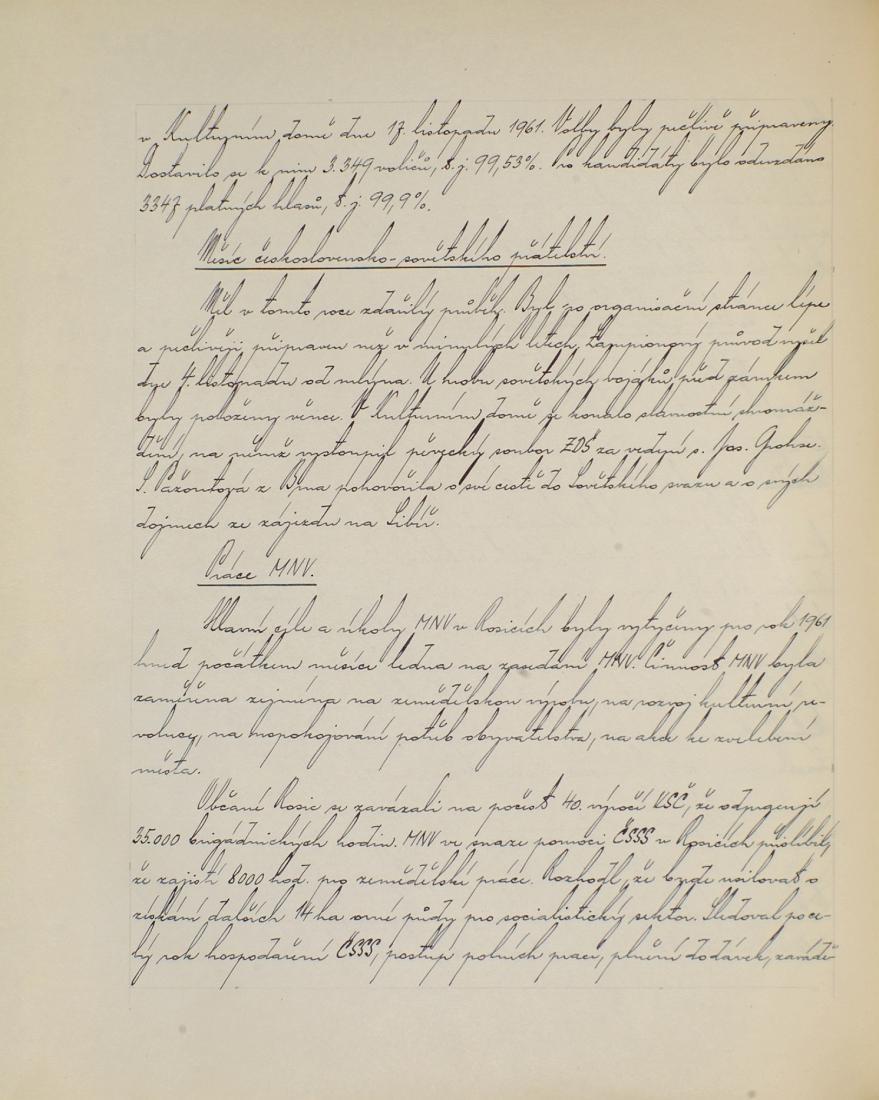 v Kulturním domě dne 17. listopadu 1961. Volby byly pečlivě připraveny.
Dostavilo se k nim 3.349 voličů, t. j. 99,53%. Pro kandidáty bylo odevzdáno
3347 platných hlasů, t. j. 99,9%.
Měsíc československo-sovětského přátelství.
Měl v tomto roce zdařilý průběh. Byl po organisační stránce lépe
a pečlivěji připraven než v minulých letech. Lampionový průvod vyšel
dne 4. listopadu od mlýna. U hrobu sovětských vojáků před zámkem
byly položeny věnce. V Kulturním domě se konalo slavnostní shromáž-
dění, na němž vystoupil pěvecký soubor ZDŠ za vedení s. Jos. Grohse.
S. Pažoutová z Brna pohovořila o své cestě do Sovětského svazu a o svých
dojmech ze zájezdu na Sibiř.
Práce MNV.
Hlavní cíle a úkoly MNV v Rosicích byly vytyčeny pro rok 1961
hned počátkem měsíce ledna na zasedání MNV. Činnost MNV byla
zaměřena zejména na zemědělskou výrobu, na rozvoj kulturní re-
voluce, na uspokojování potřeb obyvatelstva, na akce ke zvelebení
města.
Občané Rosic se zavázali na počest 40. výročí KSČ, že odpracují
35.000 brigádnických hodin. MNV ve snaze pomoci ČSSS v Rosicích přislíbily,
že zajistí 8000 hod. pro zemědělské práce. Rozhodl, že bude usilovat o
získání dalších 14 ha orné půdy pro socialistický sektor. Sledoval po ce-
lý rok hospodaření ČSSS, postup polních prací, plnění dodávek, zavádě-